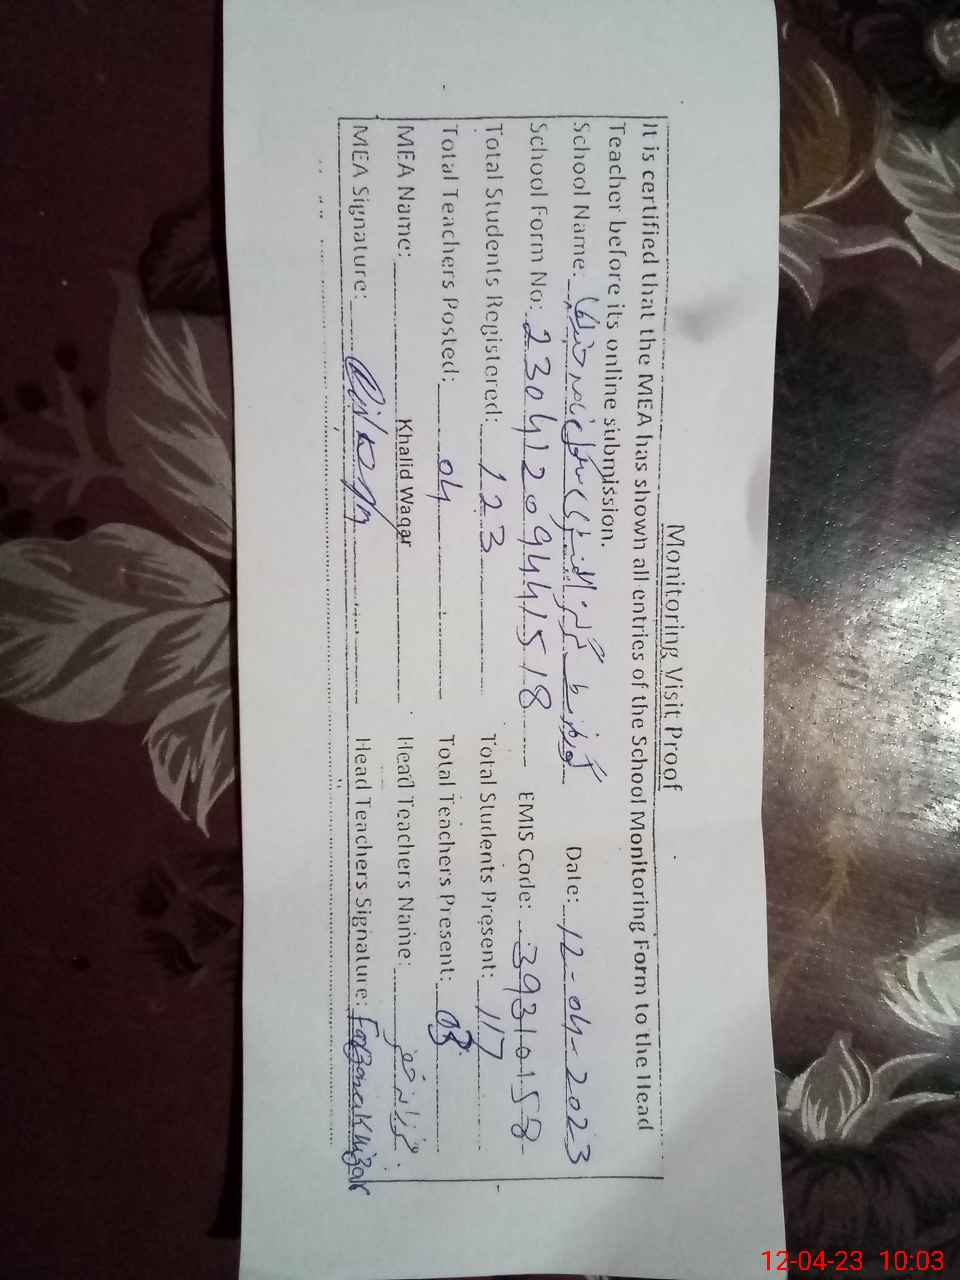 Monitoring Visit Proof
It is certified that the MEA has shown all entries of the School Monitoring Form to the Head
Teacher before its online submission.
School Name: گورنمنٹ گرلز Date: 12-04-2023
School Form No: 23041209441518 EMIS Code: 39310158
Total Students Registered: 123 Total Students Present: 117
Total Teachers Posted: 04 Total Teachers Present: 03
MEA Name: Khalid Waqar Head Teachers Name: فرزانہ خضر
MEA Signature: Head Teachers Signature: Farzana Khizar
12-04-23 10:03